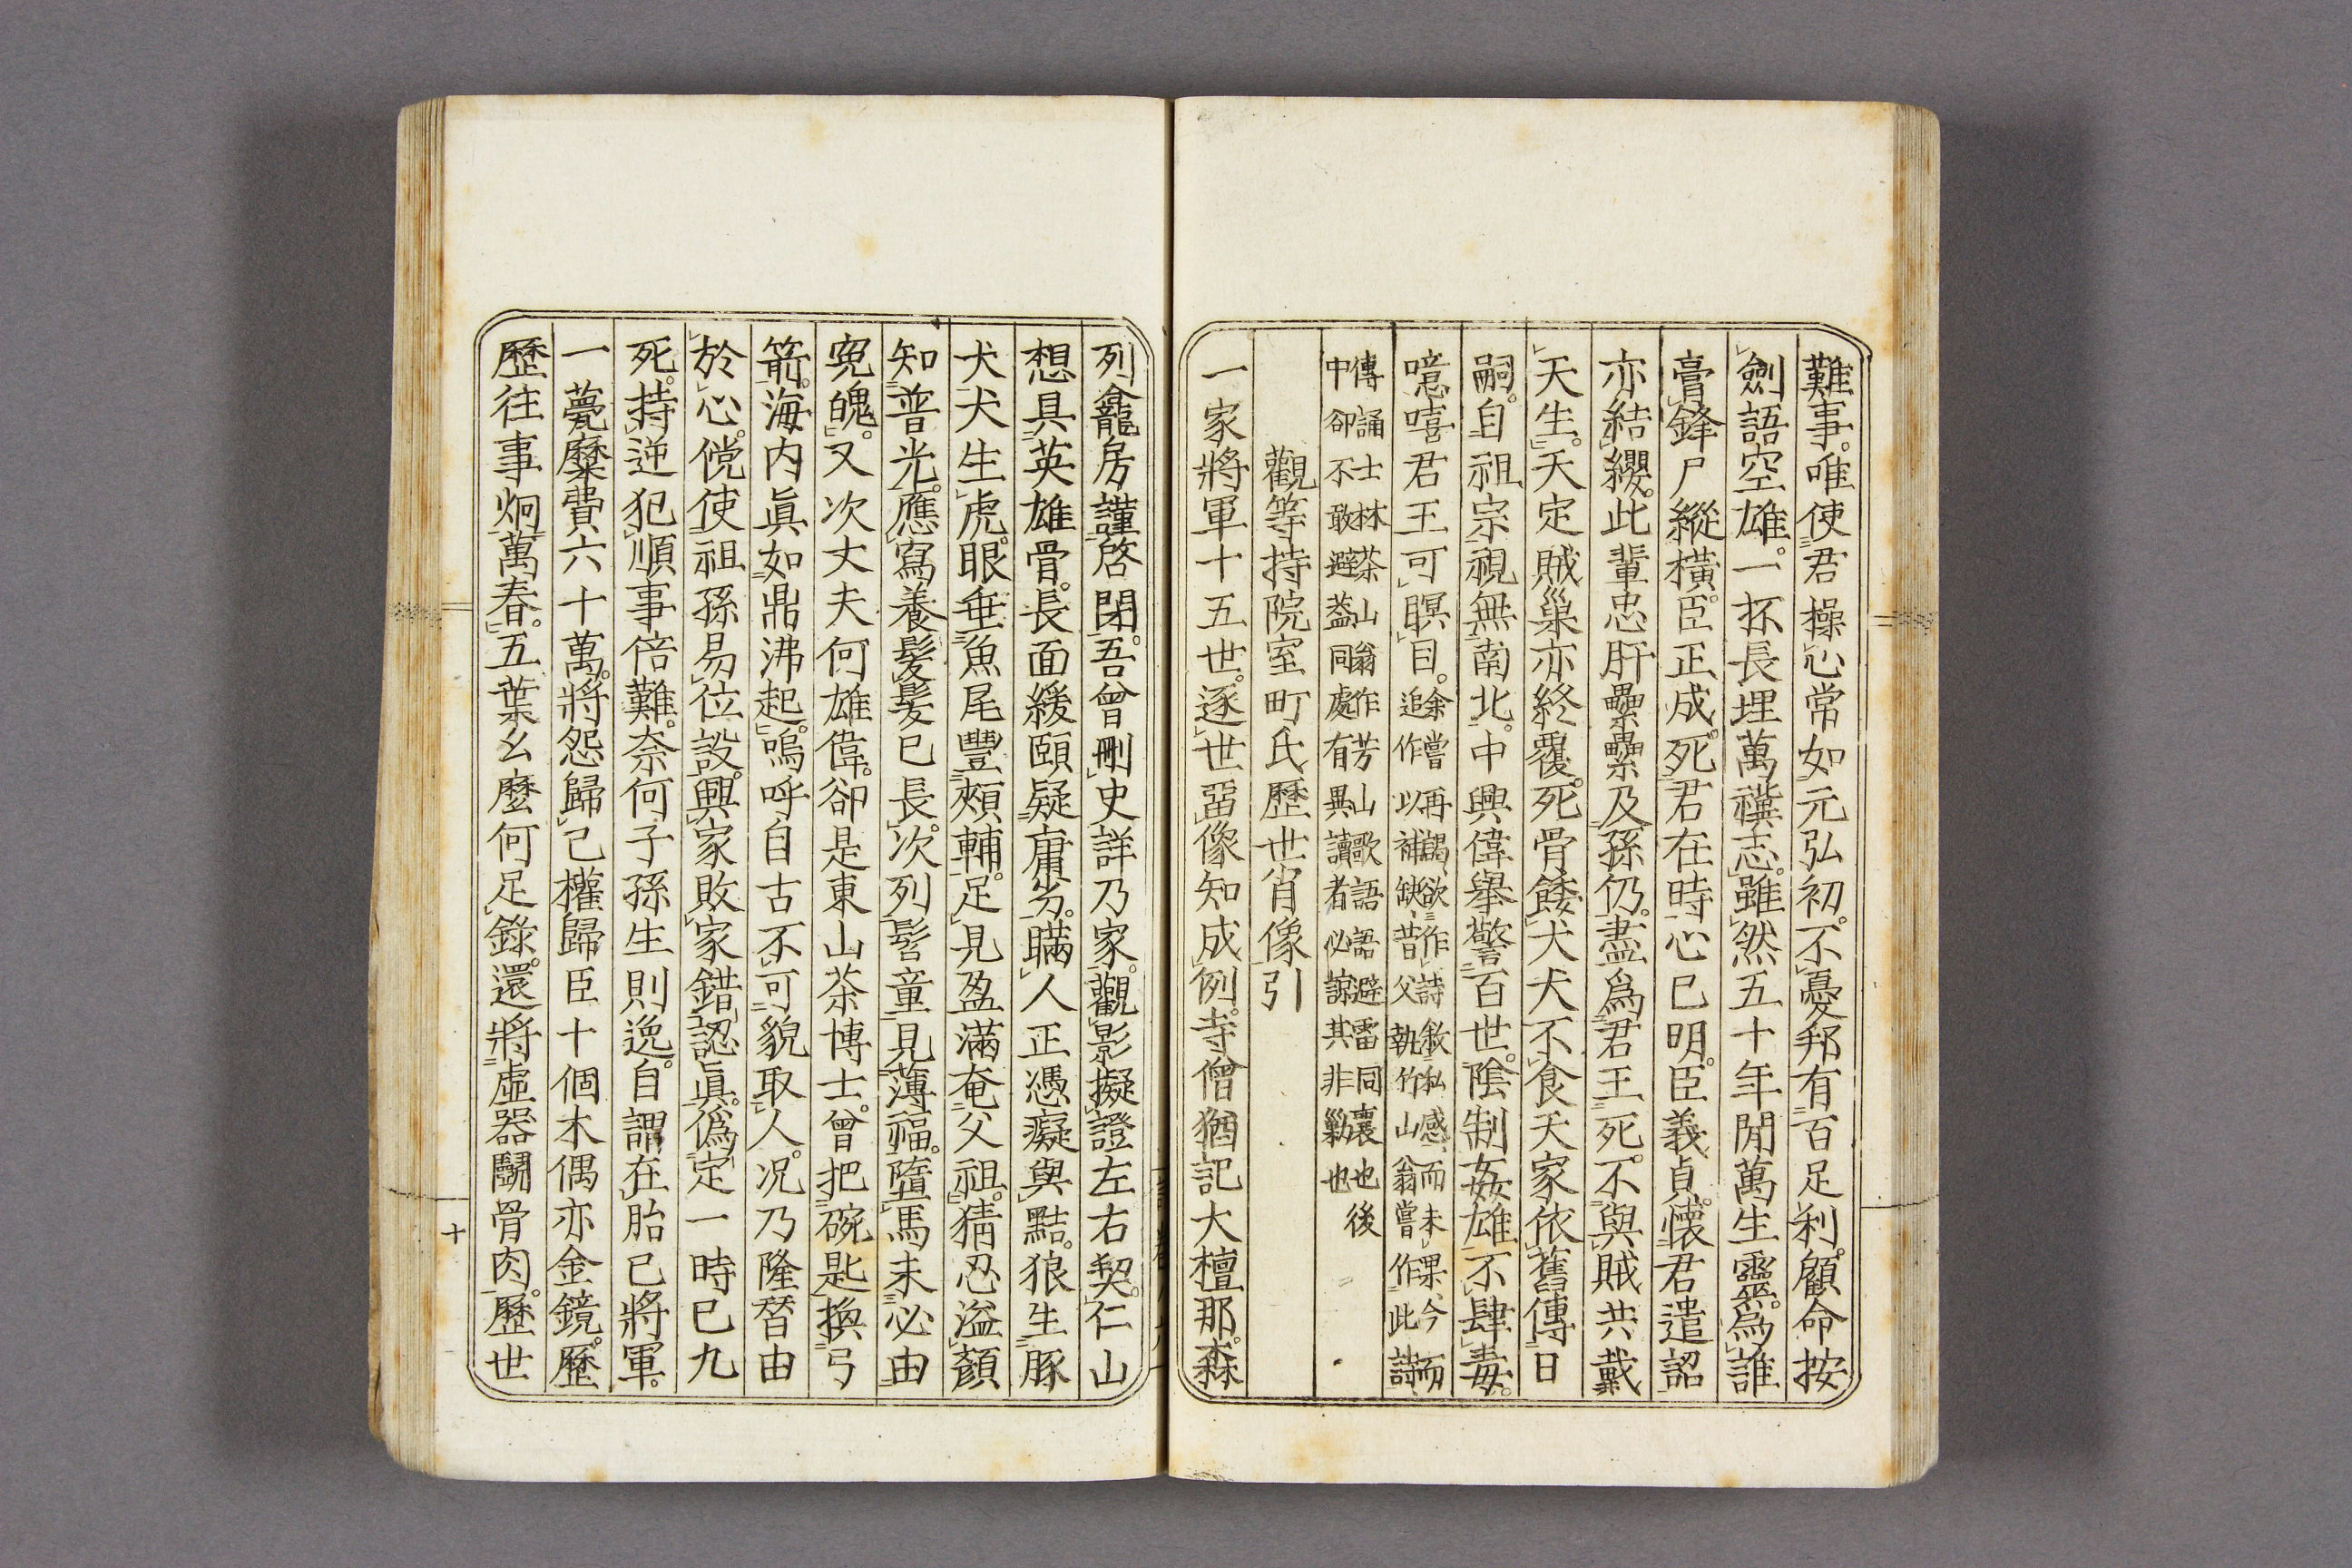 難事。唯使君操心常如元弘初。不憂邦有百足利。顧命按
劍語空雄。一抔長埋萬禩志。雖然五十年間萬生靈。爲誰
膏鋒尸縱橫。臣正成死。君在時心已明。臣義貞。懷君遣詔
亦結纓。此輩忠肝纍纍及孫仍。盡爲君王死。不與賊共戴
天生。天定賊巢亦終覆。死骨餧犬犬不食。天家依舊傳日
嗣。自祖宗視無南北。中興偉舉警百世。陰制姦雄不肆毒。
噫嘻君王可瞑目。余嘗再謁、欲作詩敘私感、而未果、今而
追作以補缺、昔父執竹山翁嘗作此詩
傳誦士林茶山翁作芳山歌語語避雷同襄也後
中卻不敢避蓋同處有異讀者必諒其非剿也
觀等持院室町氏歷世肖像引
一家將軍十五世。逐世畱像知成例。寺僧猶記大檀那。森
列龕房謹啓閉。吾曾刪史詳乃家。觀影擬證左右契。仁山
想具英雄骨。長面緩頤疑庸劣。瞞人正憑癡與黠。狼生豚
犬犬生虎。眼垂魚尾豐頰輔。足見盈滿奄父祖。猜忍溢顏
知普光。應寫養髮髮已長。次列髫童見薄福。墮馬未必由
寃魄。又次丈夫何雄偉。卻是東山茶博士。曾把碗匙換弓
箭。海內眞如鼎沸起。嗚呼自古不可貌取人。況乃隆替由
於心。儻使祖孫易位設。興家敗家錯認眞。僞定一時已九
死。持逆犯順事倍難。奈何子孫生則逸。自謂在胎已將軍。
一甍糜費六十萬。將怨歸己權歸臣十個木偶亦金鏡。歷
歷往事炯萬春。五葉幺麼何足錄。還將虛器鬪骨肉。歷世
十